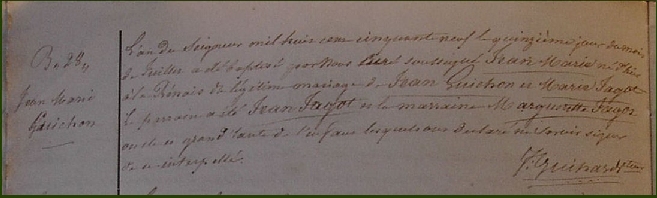 B. 28,,
Jean Marie
Guichon
L'an du Seigneur mil huit cent cinquante neuf le quinzième jour du mois
de Juillet a été baptisé par Nous Curé soussigné Jean Marie né hier
à la Bénois de légitime mariage de Jean Guichon et Marie Fagot
le parrain a été Jean Fagot et la marraine Marguerite Fagot
oncle et grand tante de l'enfant lesquels ont déclaré ne savoir signer
de ce interpellé.
J. Guichard